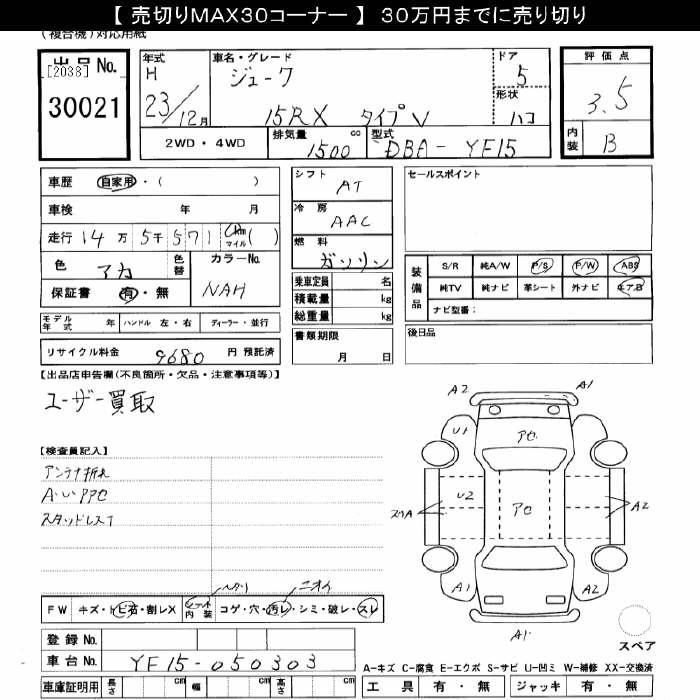 【 売切りMAX30コーナー 】 30万円までに売り切り
(複合機)対応用紙
出品 No.
[2038]
30021
年式 H 23/12月
車名・グレード ジューク
15RX タイプV
ドア 5
形状 ハコ
2WD・4WD
排気量 1500 cc
型式 DBA-YF15
評価点 3.5
内装 B
車歴 自家用・( )
車検 年 月
走行 14万5千571 Km マイル ( )
色 アカ 色替
カラーNo. NAH
保証書 有・無
モデル年式 年 ハンドル 左・右 ディーラー・並行
リサイクル料金 9680 円 預託済
シフト AT
冷房 AAC
燃料 ガソリン
乗車定員 名
積載量 kg
総重量 kg
書類期限
月 日
セールスポイント
装備品
S/R 純A/W P/S P/W ABS
純TV 純ナビ 革シート 外ナビ エアB
ナビ型番:
後日品
【出品店申告欄(不良箇所・欠品・注意事項等)】
ユーザー買取
【検査員記入】
アンテナ折れ
A・U アアセ
スタッドレスT
A2 A1
U1 アセ
スリA U2 アセ A2
A1 A2
A1
スペア
ヘタリ ニオイ
FW キズ・トビ石・割レX シート内装 コゲ・穴・汚レ・シミ・破レ・スレ
登録 No.
車台 No. YF15-050303
車庫証明用 長さ cm 幅 cm 高さ cm
A-キズ C-腐食 E-エクボ S-サビ U-凹ミ W-補修 XX-交換済
工具 有・無 ジャッキ 有・無